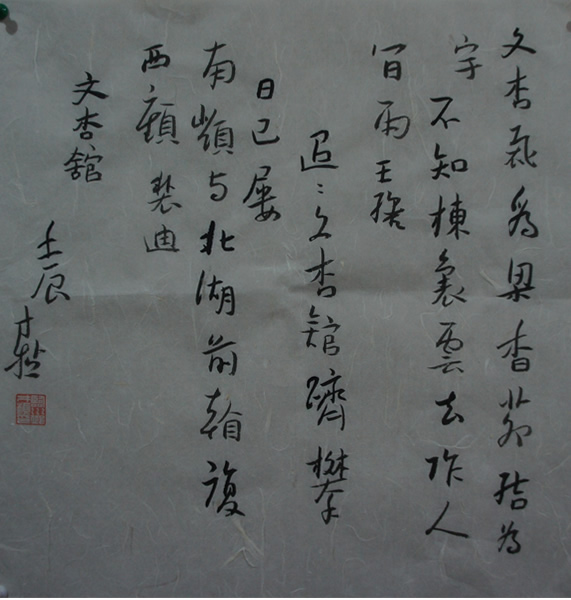 文杏裁爲梁香茅結为
宇 不知棟裏雲去作人
間雨 王維
迢〻文杏館躋攀
日已屢
南嶺与北湖前看復
西顧 裴迪
文杏館
壬辰